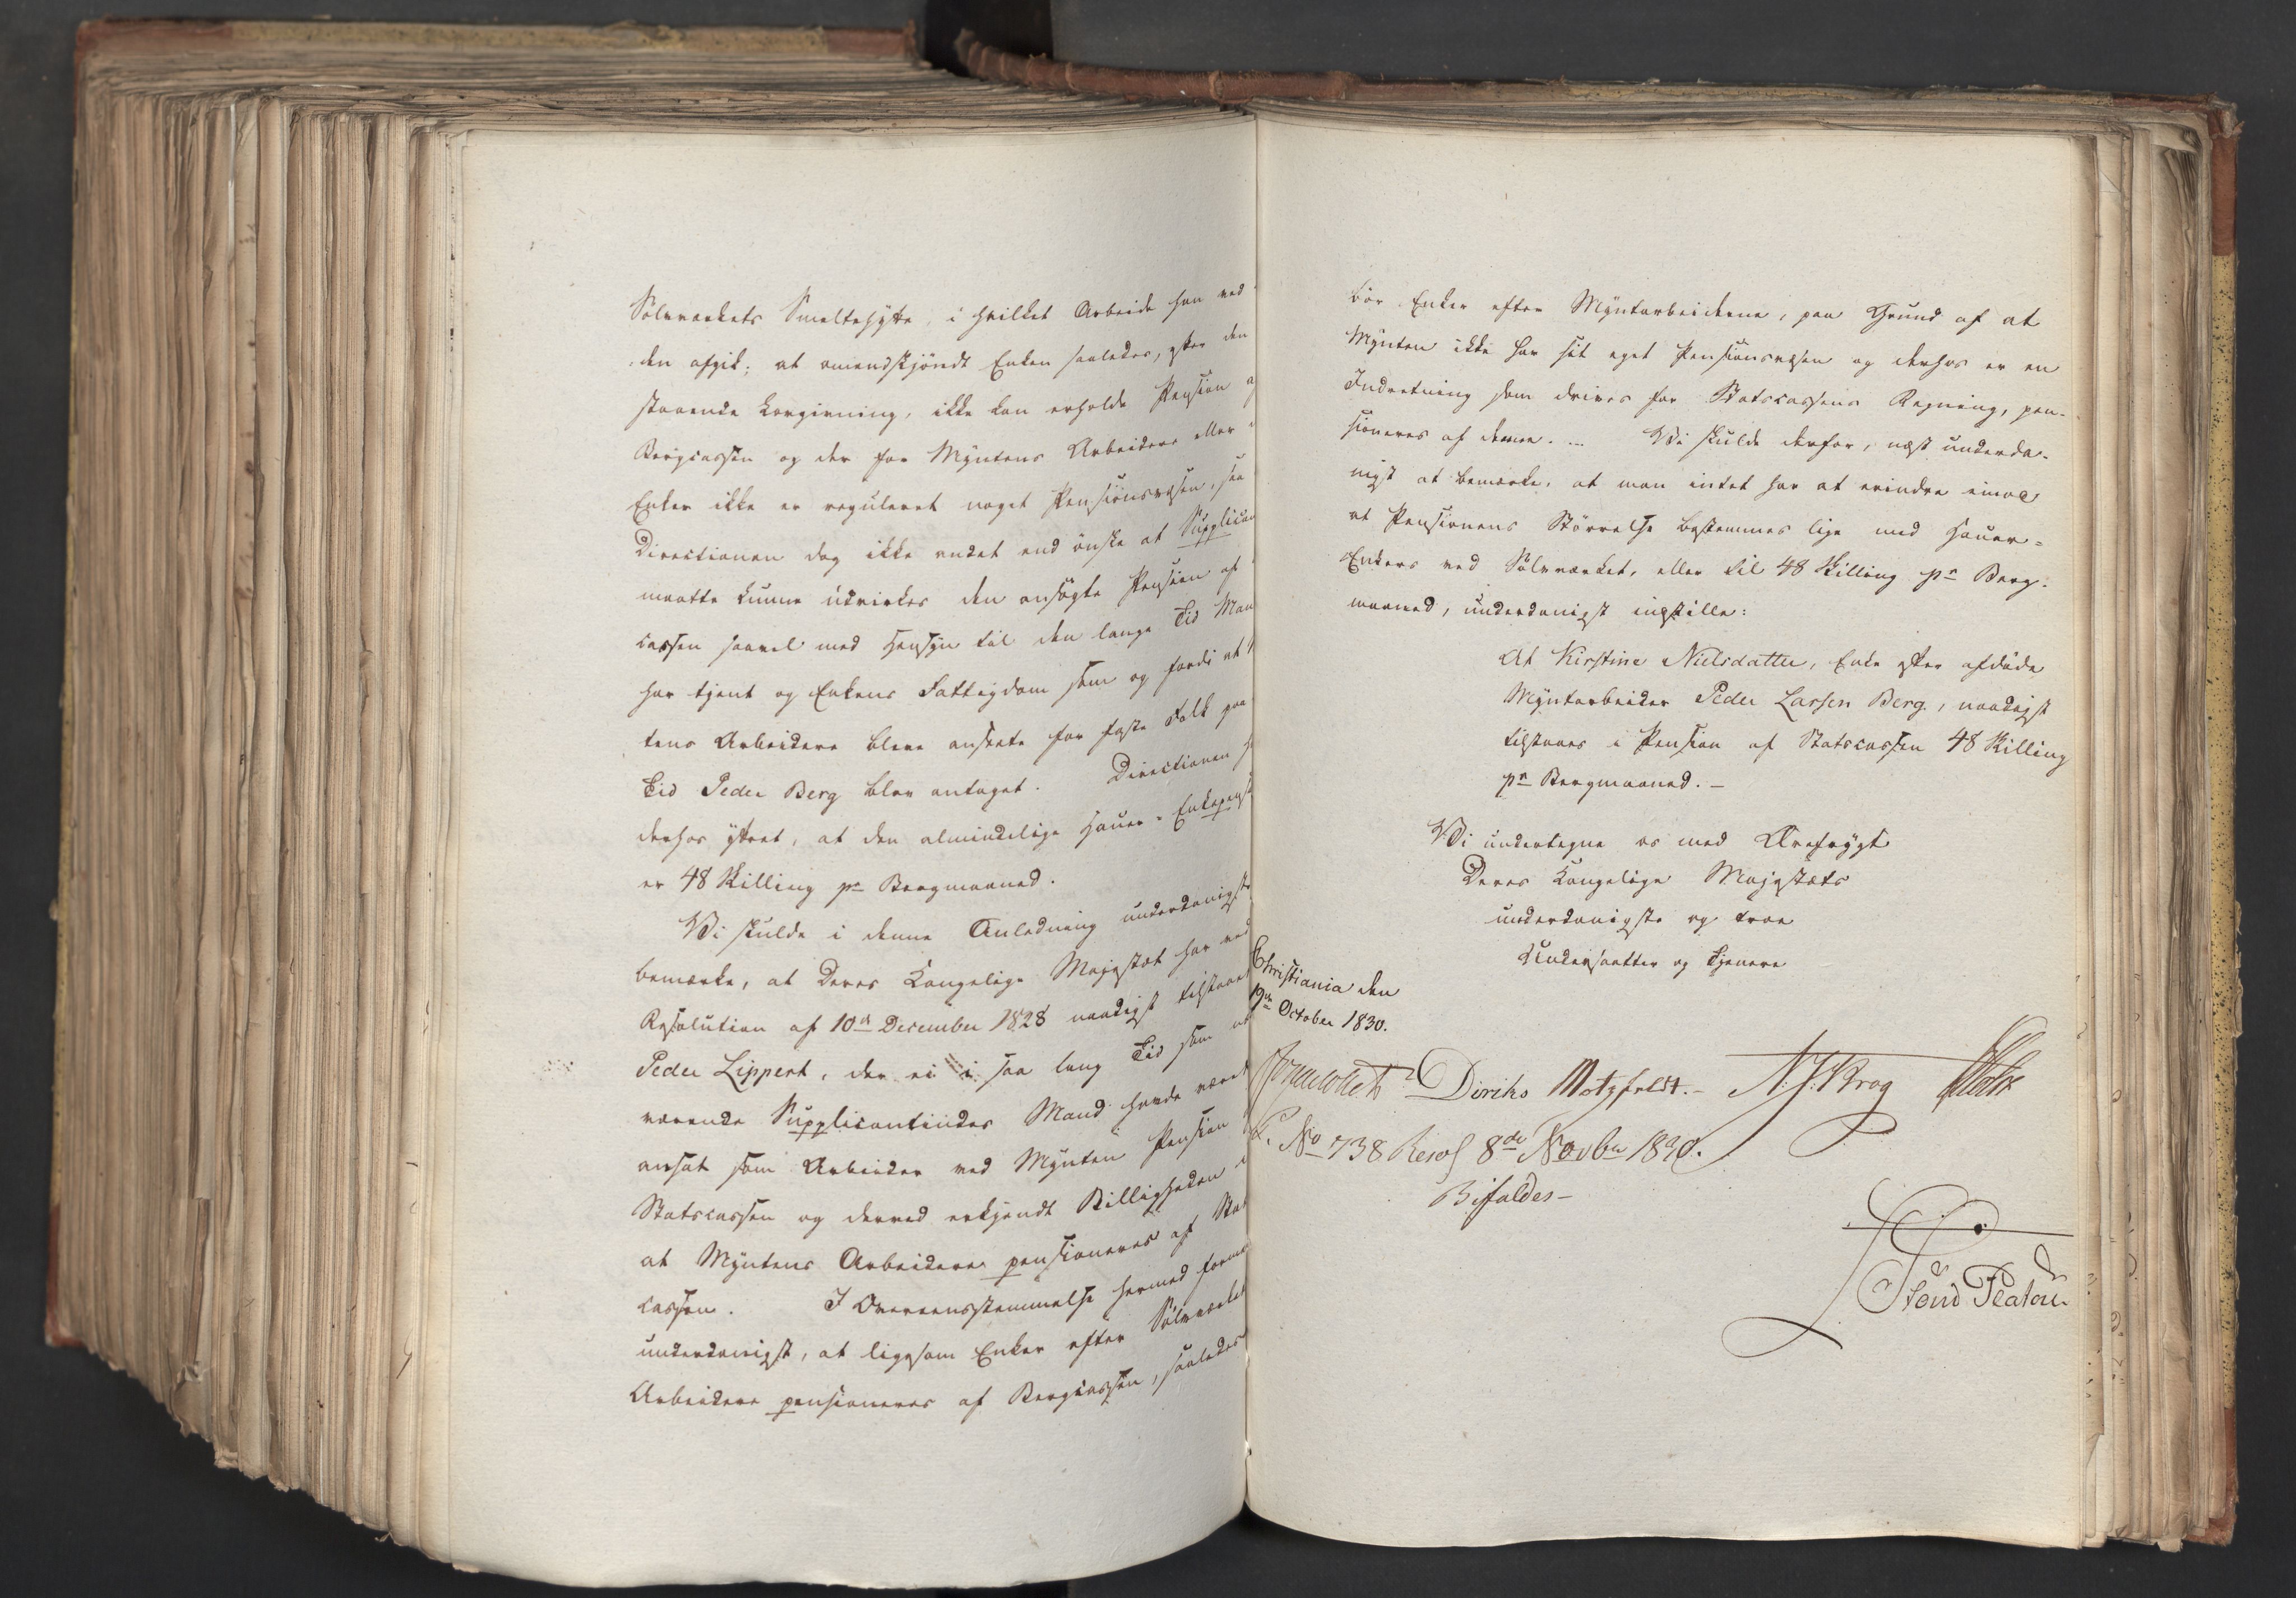 Sølvværkets Smeltehytte, i hvilket Arbeide han ved
den afgik; at omendskjöndt Enken saaledes, efter den
staaende Lovgivning, ikke kan erholde Pension
Bergcassen og der for Myntens Arbeidere eller
Enker ikke er reguleret noget Pensionsvæsen, saa
Directionen dog ikke andet end önske at Supplican
maatte kunne udvirkes den ansøgte Pension af
cassen saavel med Hensyn til den lange Tid Man
har tjent og Enkens Fattigdom som og fordi at
tens Arbeidere bleve ansete for faste Folk paa
Tid Peder Berg blev antaget. Directionen
derhos yttret, at den almindelige Hauer-Enkepens
er 48 Skilling pr Bergmaaned.
Vi skulde i denne Anledning underdanigst
bemærke, at Deres Kongelige Majestæt har ved
Resolution af 10de December 1828 naadigst tilstaaet
Peder Lippert, der ei i saa lang Tid som
værende Supplicantindes Mand havde været
ansat som Arbeider ved Mynten Pension
Statscassen og derved erkjendt Billigheden
at Myntens Arbeidere pensioneres af Stat
cassen. I Overeensstemmelse hermed forme
underdanigst, at ligesom Enker efter Sølvværket
Arbeidere pensioneres af Bergcassen, saaledes
bör Enker efter Myntarbeiderne, paa Grund af at
Mynten ikke har sit eget Pensionsvæsen og derhos er en
Indretning som drives for Statscassens Regning, pen-
sioneres af denne. Vi skulde derfor, næst underda-
nigst at bemærke, at man intet har at erindre imod
at Pensionens Störrelse bestemmes lige med Hauer-
Enkers ved Sölvværket, eller til 48 Skilling pr Berg-
maaned, underdanigst indstille:
At Kirstine Nielsdatter, Enke efter afdöde
Myntarbeider Peder Larsen Berg, naadigst
tilstaaes i Pension af Statscassen 48 Skilling
pr Bergmaaned.
Vi undertegne os med Ærefrygt
Deres Kongelige Majestæts
underdanigste og troe
Undersaatter og Tjenere
Christiania den
19de October 1830.
Diriks Motzfeldt. N. J. Krog
No 738 Resol 8de Novbr 1830.
Bifaldes